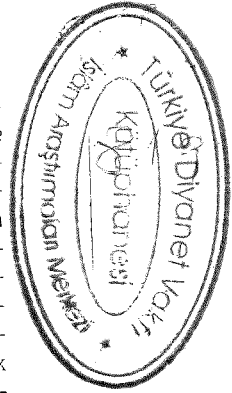 Türkiye Diyanet Vakfı
İslâm Araştırmaları Merkezi
Kütüphanesi
x